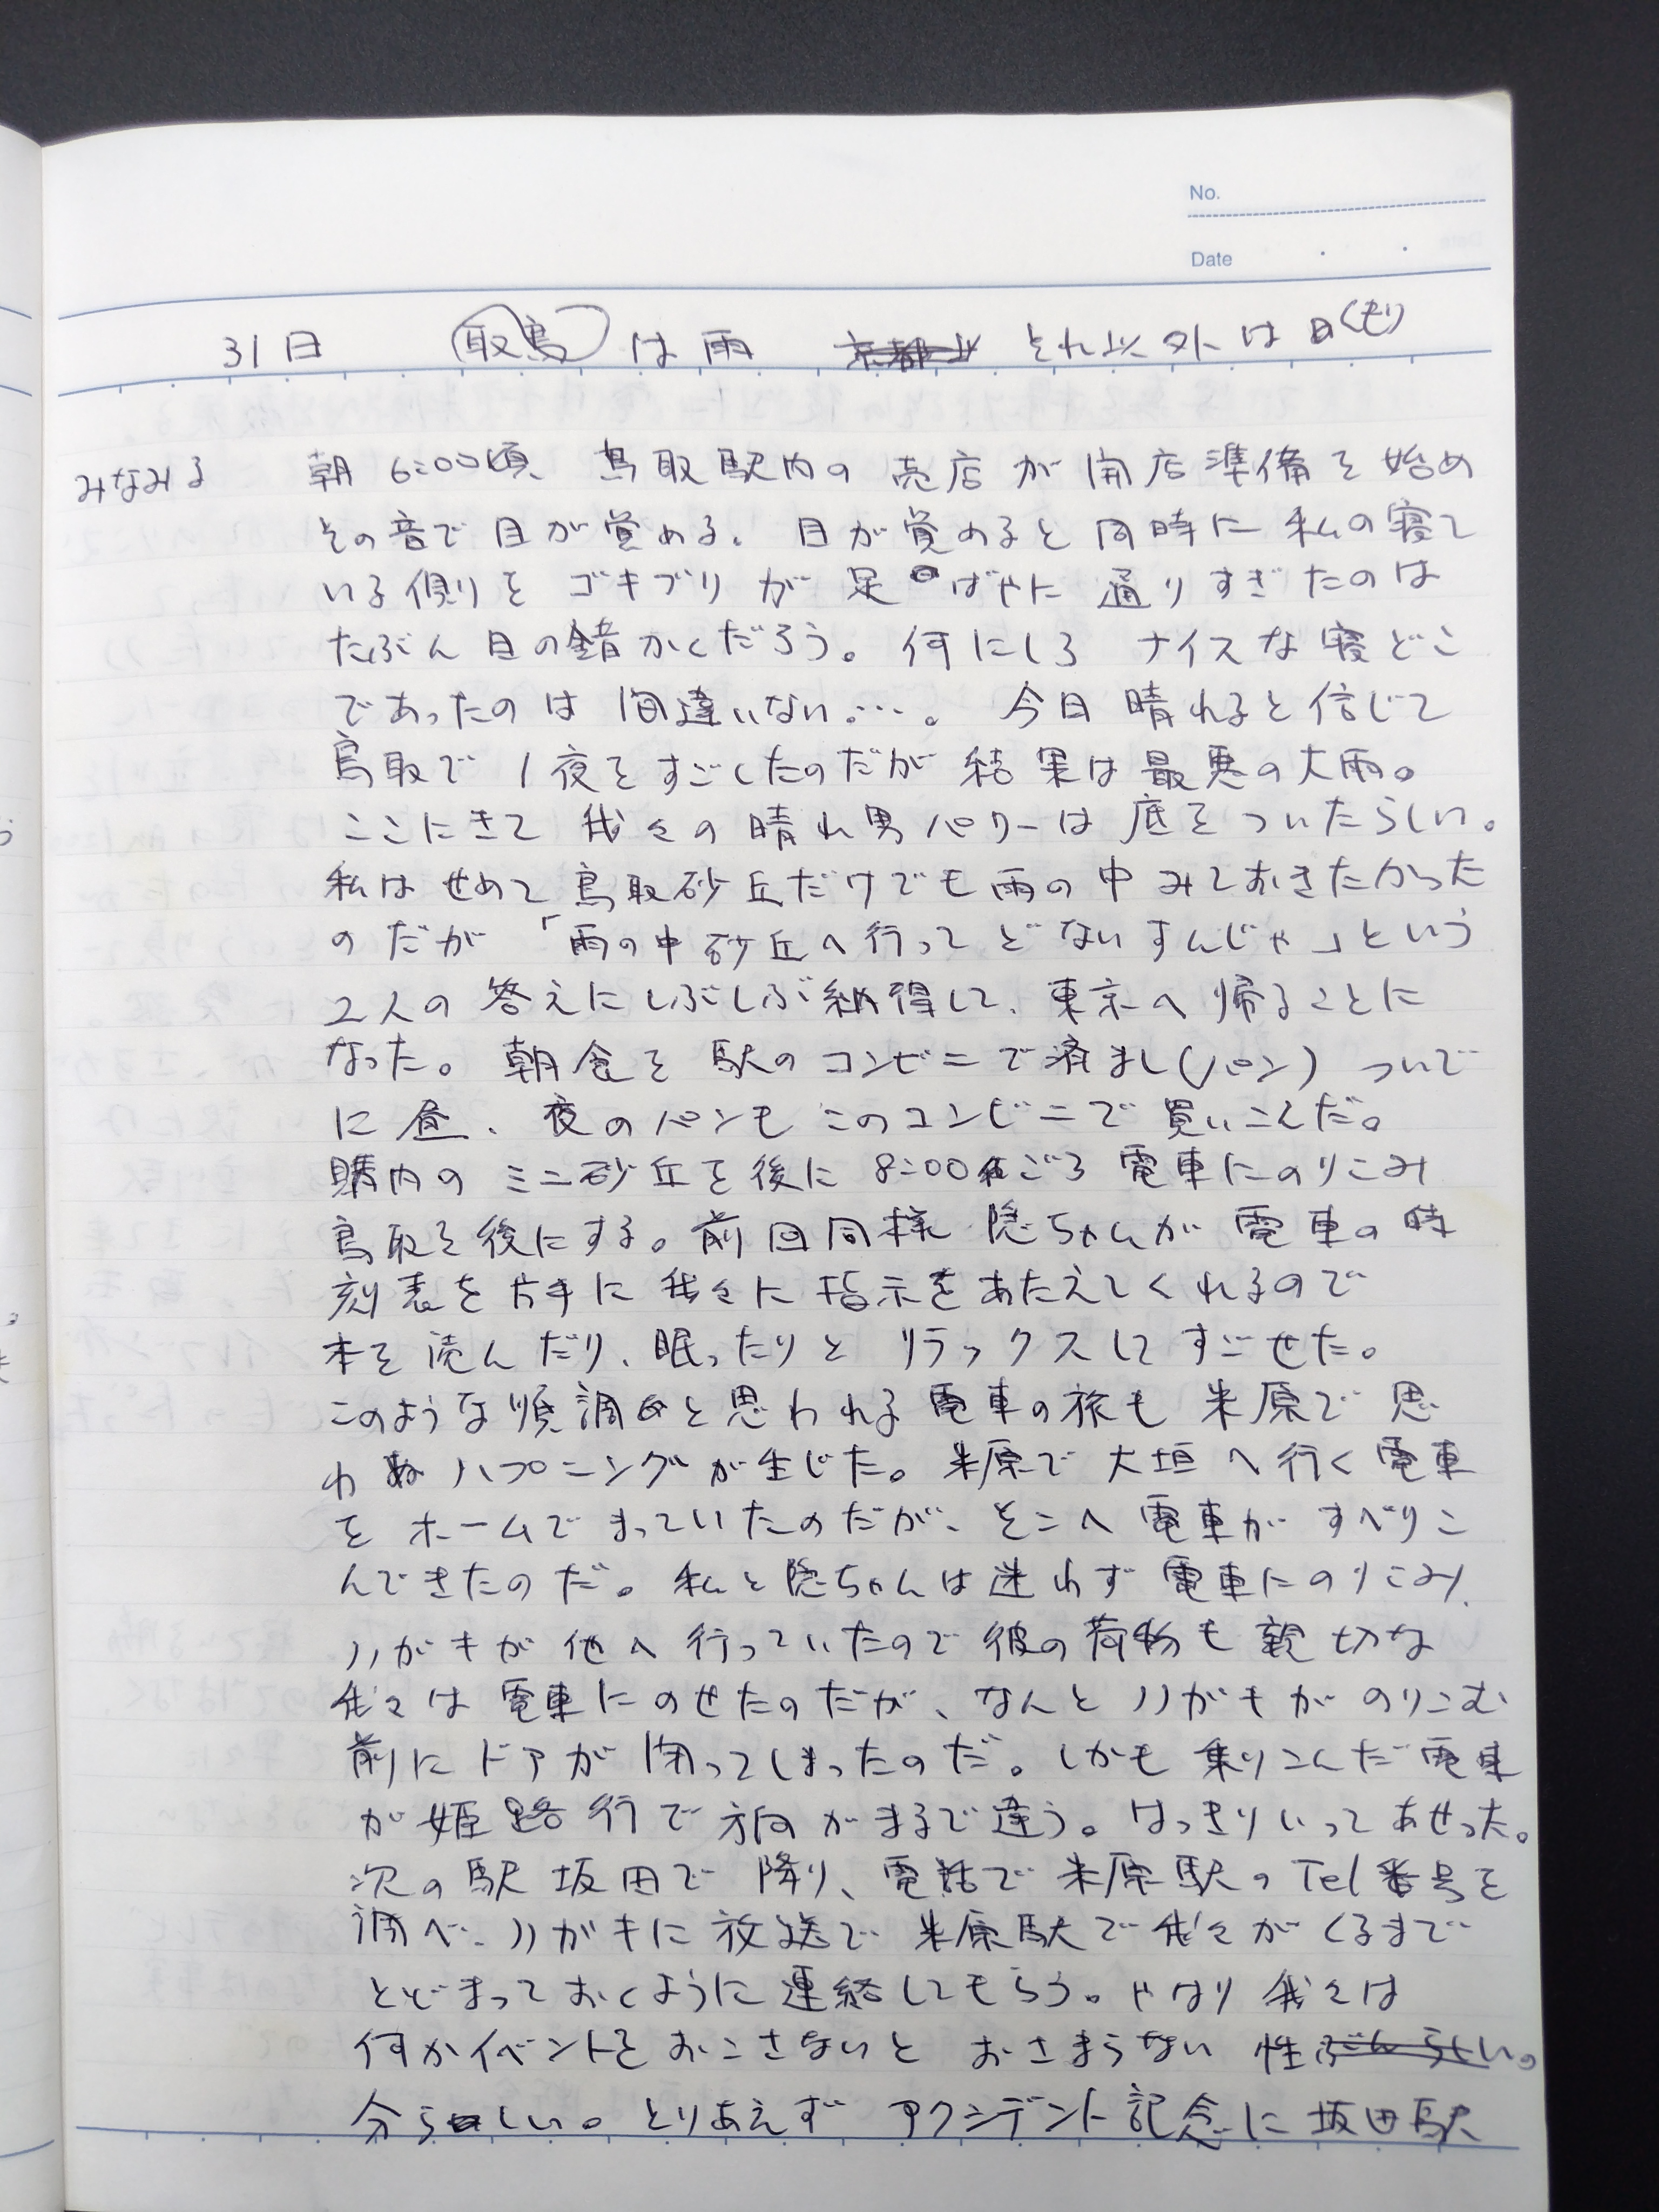 No.
Date
31日 取鳥は雨 京都以 それ以外は日くもり
みなみる
朝6:00頃、鳥取駅内の売店が開店準備を始め
その音で目が覚める。目が覚めると同時に私の寝て
いる側りをゴキブリが足ばやに通りすぎたのは
たぶん目の錯かくだろう。何にしろナイスな寝どこ
であったのは間違いない…。今日晴れると信じて
鳥取で1夜をすごしたのだが結果は最悪の大雨。
ここにきて我々の晴れ男パワーは底をついたらしい。
私はせめて鳥取砂丘だけでも雨の中みておきたかった
のだが「雨の中砂丘へ行ってどないすんじゃ」という
2人の答えにしぶしぶ納得して、東京へ帰ることに
なった。朝食を駅のコンビニで済まし(パン)ついで
に昼、夜のパンもこのコンビニで買いこんだ。
購内のミニ砂丘を後に8:00ごろ電車にのりこみ
鳥取を後にする。前回同様隠ちゃんが電車の時
刻表を片手に我々に指示をあたえてくれるので
本を読んだり、眠ったりとリラックスしてすごせた。
このような順調と思われる電車の旅も米原で思
わぬハプニングが生じた。米原で大垣へ行く電車
をホームでまっていたのだが、そこへ電車がすべりこ
んできたのだ。私と隠ちゃんは迷わず電車にのりこみ、
ハガキが他へ行っていたので彼の荷物も親切な
我々は電車にのせたのだが、なんとハガキがのりこむ
前にドアが閉ってしまったのだ。しかも乗りこんだ電車
が姫路行で方向がまるで違う。はっきりいってあせった。
次の駅坂田で降り、電話で米原駅のTel番号を
調べ、ハガキに放送で米原駅で我々がくるまで
とどまっておくように連絡してもらう。やはり我々は
何かイベントをおこさないとおさまらない性ぶんらしい。
分らしい。とりあえずアクシデント記念に坂田駅